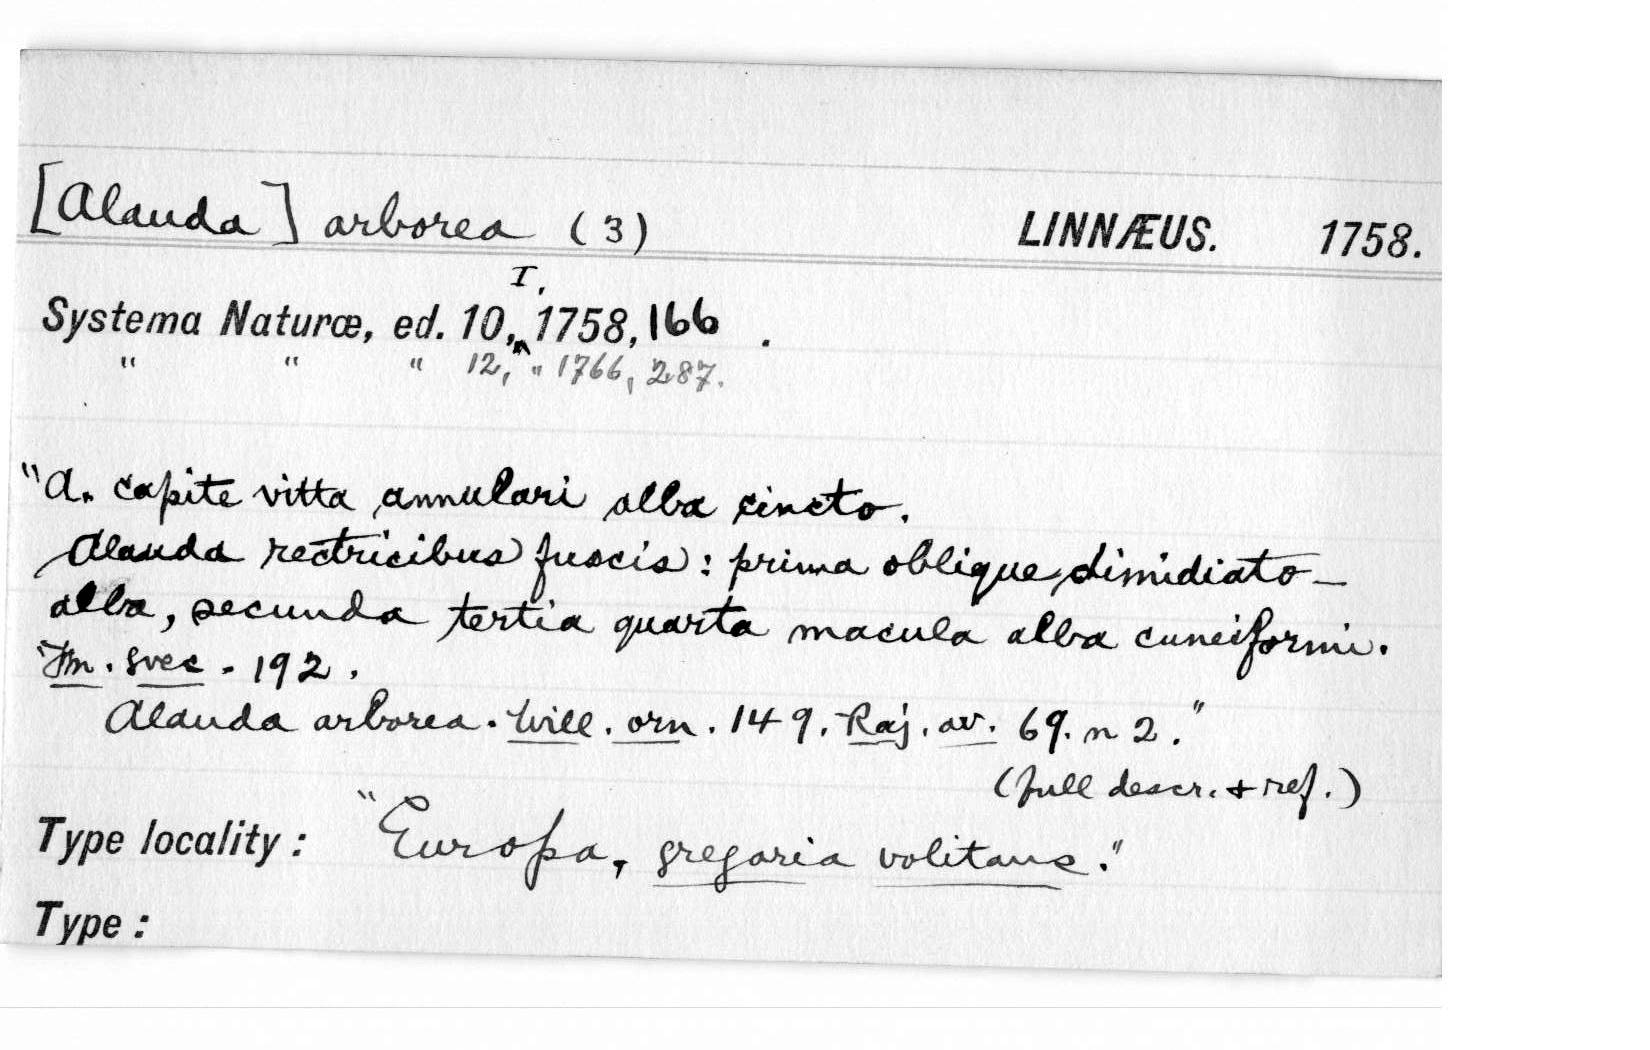 [Alauda] arborea (3) LINNÆUS. 1758.
I,
Systema Naturæ, ed. 10, ^ 1758, 166.
" " " 12, " 1766, 287.
"A. capite vitta annulari alba cincto.
Alauda rectricibus fuscis: prima oblique dimidiato-
alba, secunda tertia quarta macula alba cuneiformi.
Fn. svec. 192.
Alauda arborea. Will. orn. 149. Raj. av. 69. n 2."
(full descr. + ref.)
Type locality: "Europa, gregaria volitans."
Type: